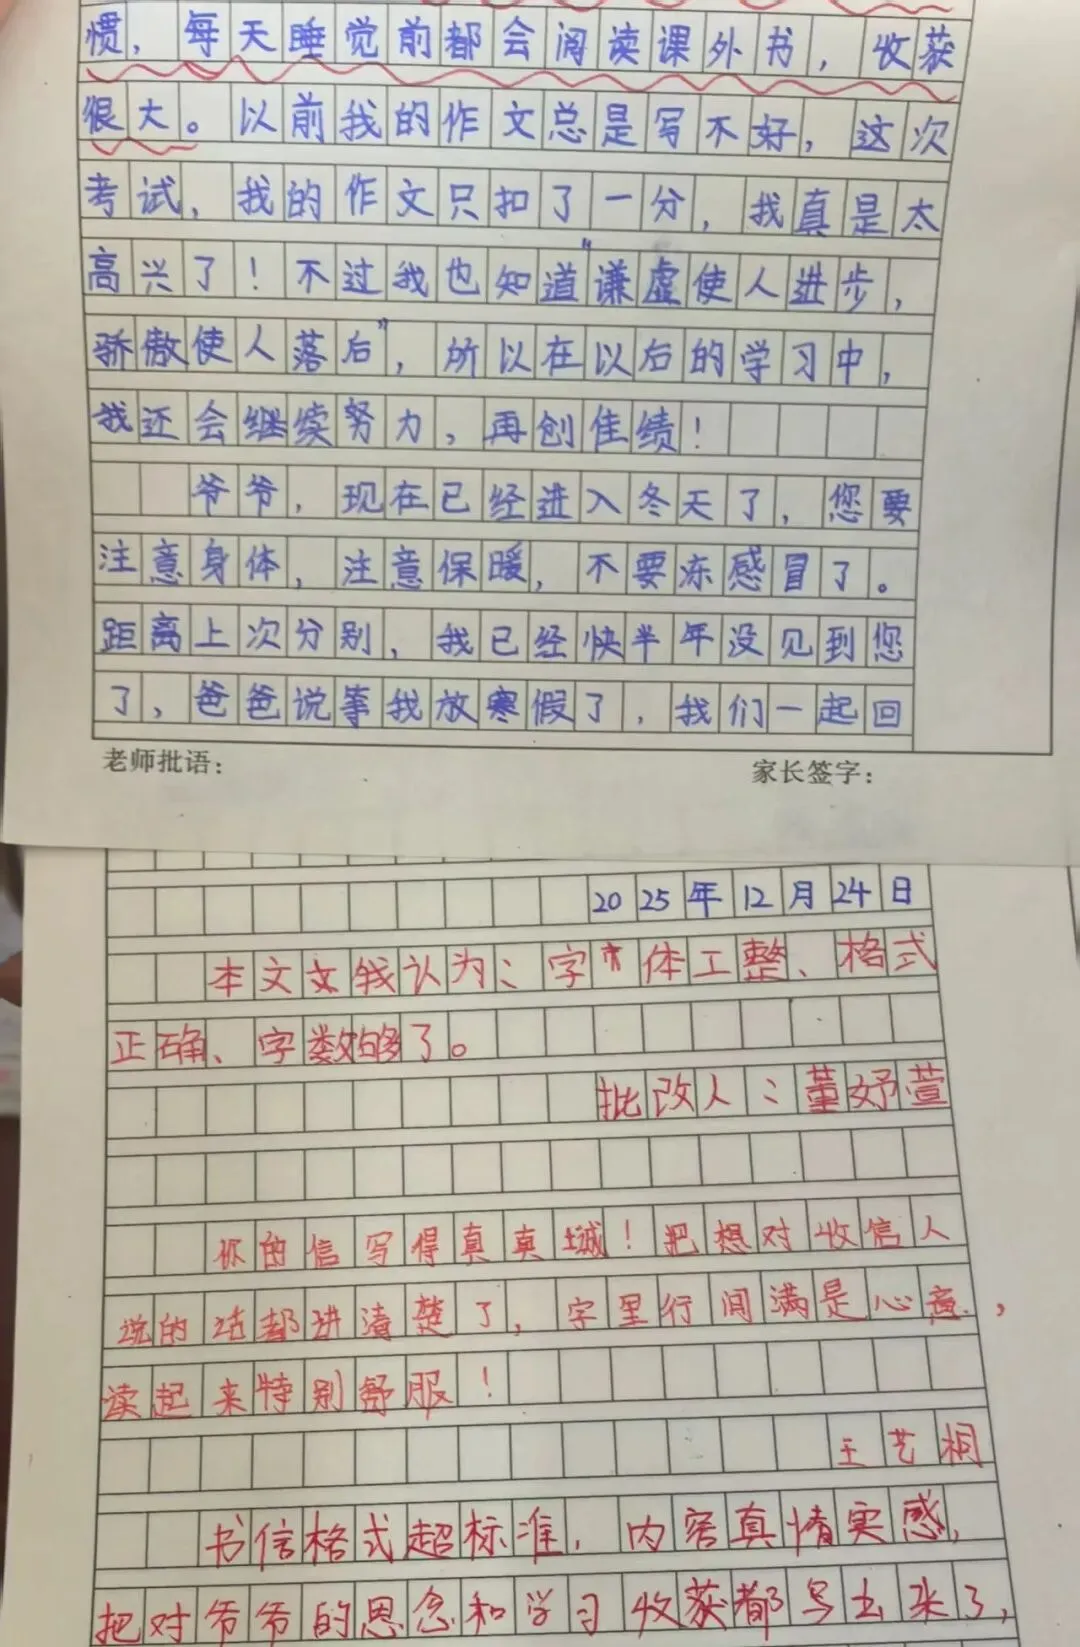 惯，每天睡觉前都会阅读课外书，收获
很大。以前我的作文总是写不好，这次
考试，我的作文只扣了一分，我真是太
高兴了！不过我也知道“谦虚使人进步，
骄傲使人落后”，所以在以后的学习中，
我还会继续努力，再创佳绩！
爷爷，现在已经进入冬天了，您要
注意身体，注意保暖，不要冻感冒了。
距离上次分别，我已经快半年没见到您
了，爸爸说等我放寒假了，我们一起回
老师批语：
家长签字：
2025年12月24日
本文文我认为：字体工整、格式
正确、字数够了。
批改人：董妤萱
你的信写得真真诚！把想对收信人
说的话都讲清楚了，字里行间满是心意，
读起来特别舒服！
王艺桐
书信格式超标准，内容真情实感，
把对爷爷的思念和学习收获都写出来了，